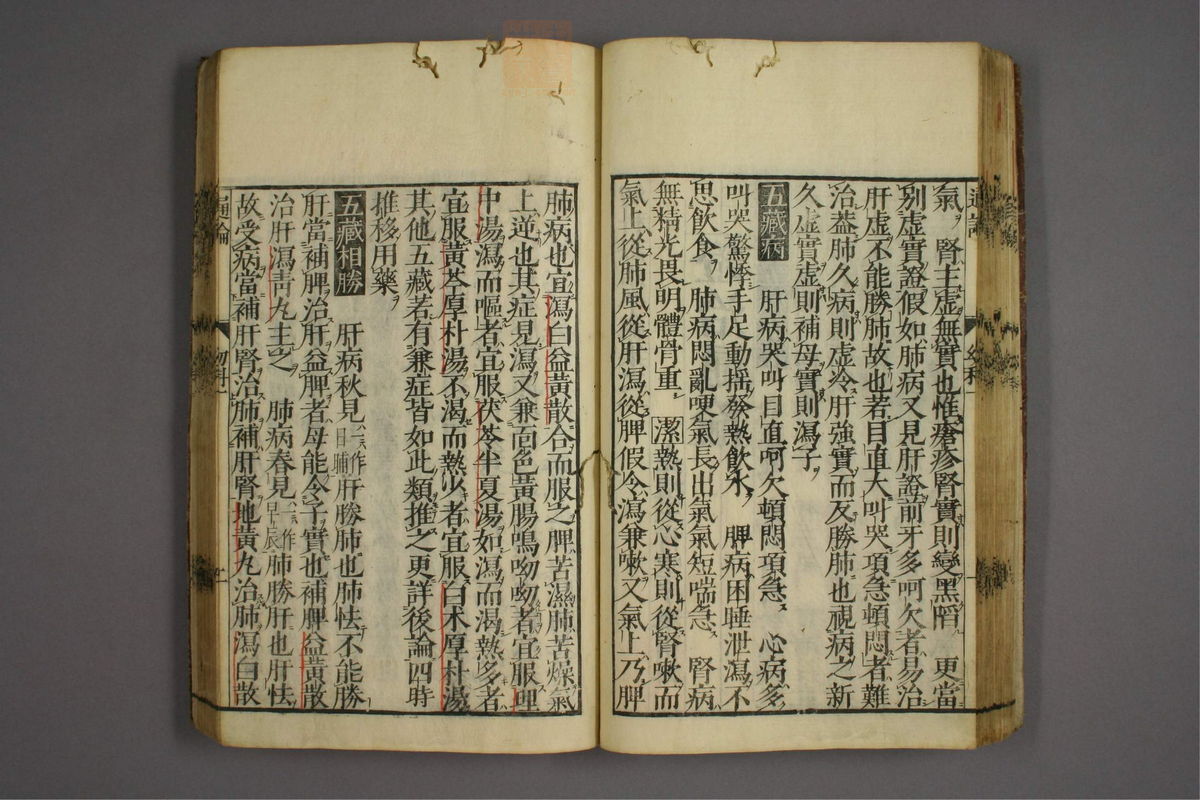 氣 腎主虛無實也惟瘡疹腎實則變黑陷 更當
別虛實證假如肺病又見肝證前牙多呵欠者易治
肝虛不能勝肺故也若目直大叫哭項急頓悶者難
治蓋肺久病則虛冷肝強實而反勝肺也視病之新
久虛實虛則補母實則瀉子
五藏病 肝病哭叫目直呵欠頓悶項急 心病多
叫哭驚悸手足動搖發熱飲水 脾病困睡泄瀉不
思飲食 肺病悶亂哽氣長出氣氣短喘急 腎病
無精光畏明體骨重 潔熱則從心寒則從腎嗽而
氣上從肺風從肝瀉從脾假令瀉兼嗽又氣上乃脾
肺病也宜瀉白益黃散合而服之脾苦濕肺苦燥氣
上逆也其症見瀉又兼面色黃腸鳴呦呦者宜服理
中湯瀉而嘔者宜服茯苓半夏湯如瀉而渴熱多者
宜服黃芩厚朴湯不渴而熱少者宜服白朮厚朴湯
其他五藏若有兼症皆如此類推之更詳後論四時
推移用藥
五藏相勝 肝病秋見一作日晡肝勝肺也肺怯不能勝
肝當補脾治肝益脾者母能令子實也補脾益黃散
治肝瀉青丸主之 肺病春見一作早辰肺勝肝也肝怯
故受病當補肝腎治肺補肝腎地黃丸治肺瀉白散
通論
幼科一